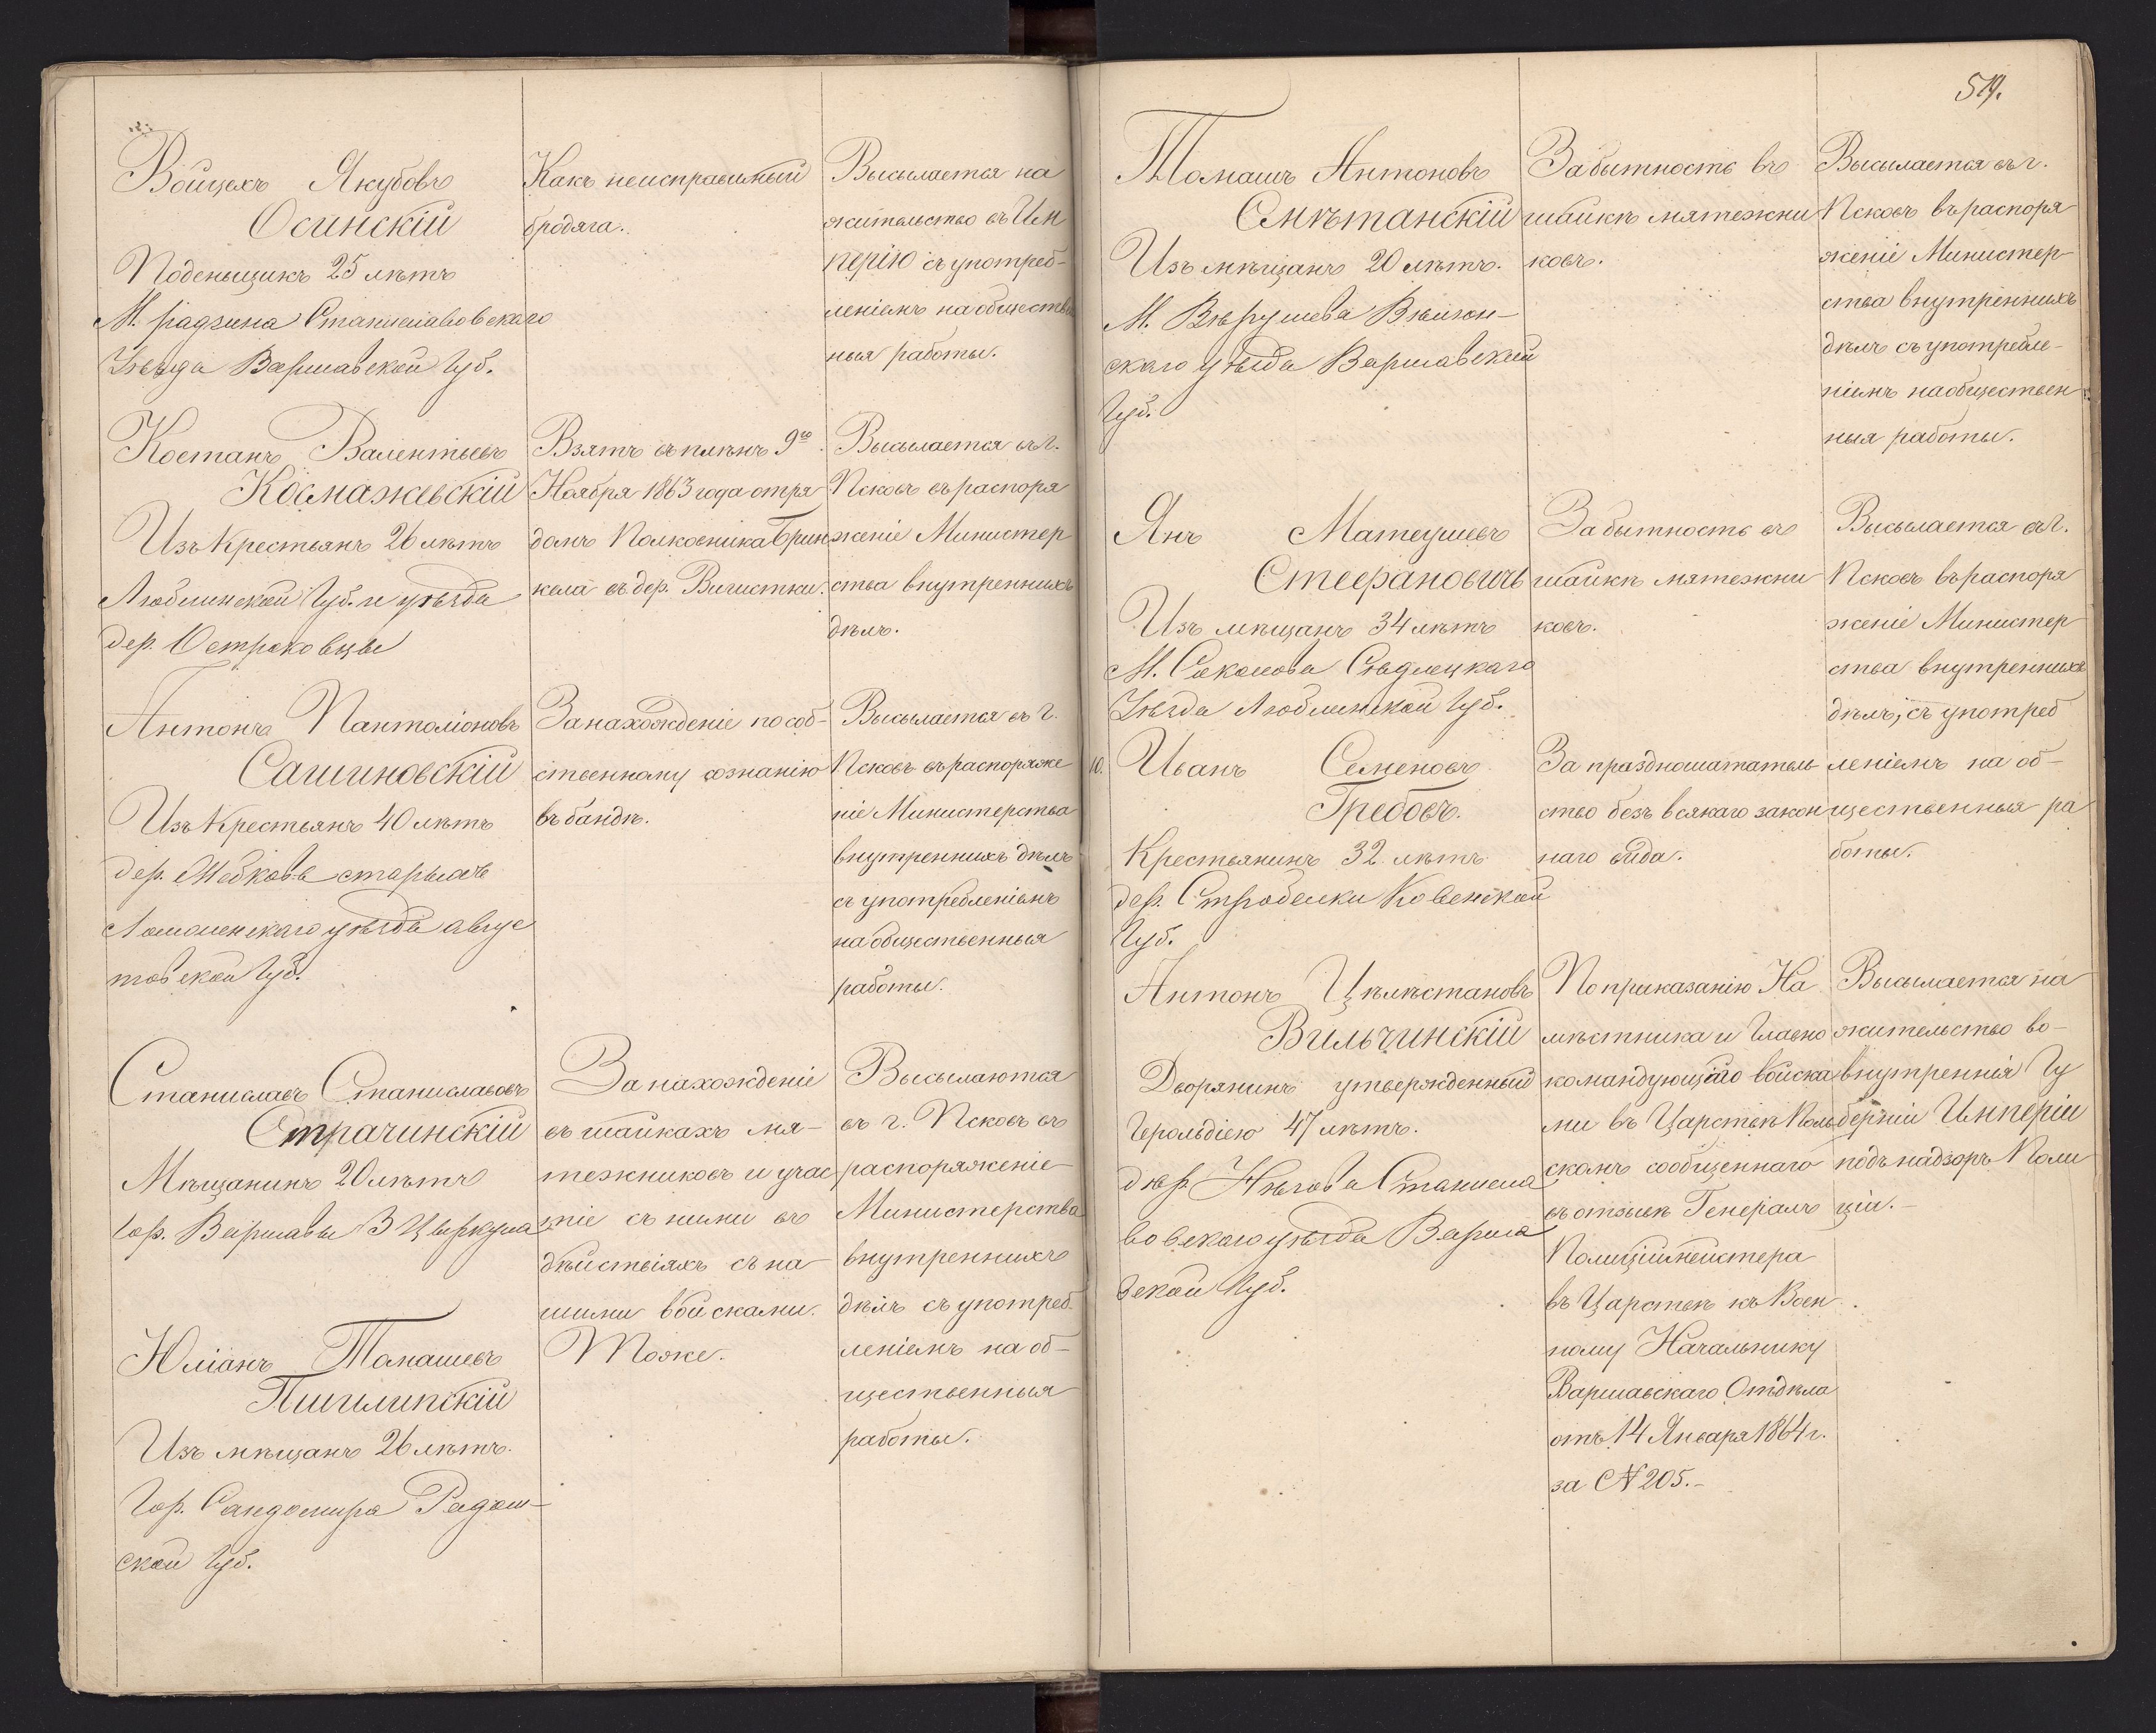 Войцехъ Якубовъ
Осинскій
Поденьщикъ 25 лѣтъ
М. Радзина Станиславовскаго
Уѣзда Варшавской Губ.
Какъ неисправимый
бродяга.
Высылается на
жительство въ Им
перію съ употреб-
леніемъ на обществен
ныя работы.
Костанъ Валентьевъ
Космажевскій
Изъ Крестьянъ 26 лѣтъ
Люблинской Губ. и уѣзда
дер. Острековцы
Взятъ въ плѣнъ 9го
Ноября 1863 года отря
домъ Полковника Брин
кела въ дер. Вигистки.
Высылается въ г.
Псковъ въ распоря
женіе Министер
ства внутреннихъ
дѣлъ.
Антонъ Пантоліоновъ
Сашиновскій
Изъ Крестьянъ 40 лѣтъ
дер. старыхъ
Ломженскаго уѣзда авгус
товской Губ.
За нахожденіе по соб-
ственному сознанію
въ бандѣ.
Высылается въ г.
Псковъ въ распоряже
ніе Министерства
внутреннихъ дѣлъ
съ употребленіемъ
на общественныя
работы.
Станиславъ Станиславовъ
Страчинскій
Мѣщанинъ 20 лѣтъ
Гор. Варшавы 3 Цыркула
За нахожденіе
въ шайкахъ мя-
тежниковъ и учас
тіе съ ними въ
дѣйствіяхъ съ на-
шими войсками.
Высылаются
въ г. Псковъ въ
распоряженіе
Министерства
внутреннихъ
дѣлъ съ употреб-
леніемъ на об-
щественныя
работы.
Юліанъ Томашевъ
Пшилипскій
Изъ мѣщанъ 26 лѣтъ.
Гор. Сандомира Радом-
ской Губ.
Тоже.
519.
Томашъ Антоновъ
Смѣтанскій
Изъ мѣщанъ 20 лѣтъ.
М. Вѣрушева Вѣлюн-
скаго уѣзда Варшавской
Губ.
За бытность въ
шайкѣ мятежни
ковъ.
Высылается въ г.
Псковъ въ распоря
женіе Министер
ства внутреннихъ
дѣлъ съ употребле-
ніемъ на обществен
ныя работы.
Янъ Матеушевъ
Стефановичъ
Изъ мѣщанъ 34 лѣтъ
М. Соколова Сѣдлецкаго
Уѣзда Люблинской Губ.
За бытность въ
шайкѣ мятежни
ковъ.
Высылается въ г.
Псковъ въ распоря
женіе Министер
ства внутреннихъ
дѣлъ, съ употреб
леніемъ на об-
щественныя ра
боты.
10. Иванъ Семеновъ
Гребовъ.
Крестьянинъ 32 лѣтъ
дер. Стробелки Ковенской
Губ.
За праздношататель
ство безъ всякаго закон
наго вида.
Антонъ Цѣлѣстановъ
Вильчинскій
Дворянинъ утвержденный
Герольдіею 47 лѣтъ.
дер. Нѣгова Станисла
вовскаго уѣзда Варша
вской Губ.
По приказанію На
мѣстника и Главно
командующаго войска
ми въ Царствѣ Поль
скомъ сообщеннаго
въ отзывѣ Генералъ
Полиціймейстера
въ Царствѣ къ Воен
ному Начальнику
Варшавскаго Отдѣла
отъ 14 Января 1864 г.
за № 205.-
Высылается на
жительство во-
внутреннія Гу
берніи Имперіи
подъ надзоръ Поли
ціи.-